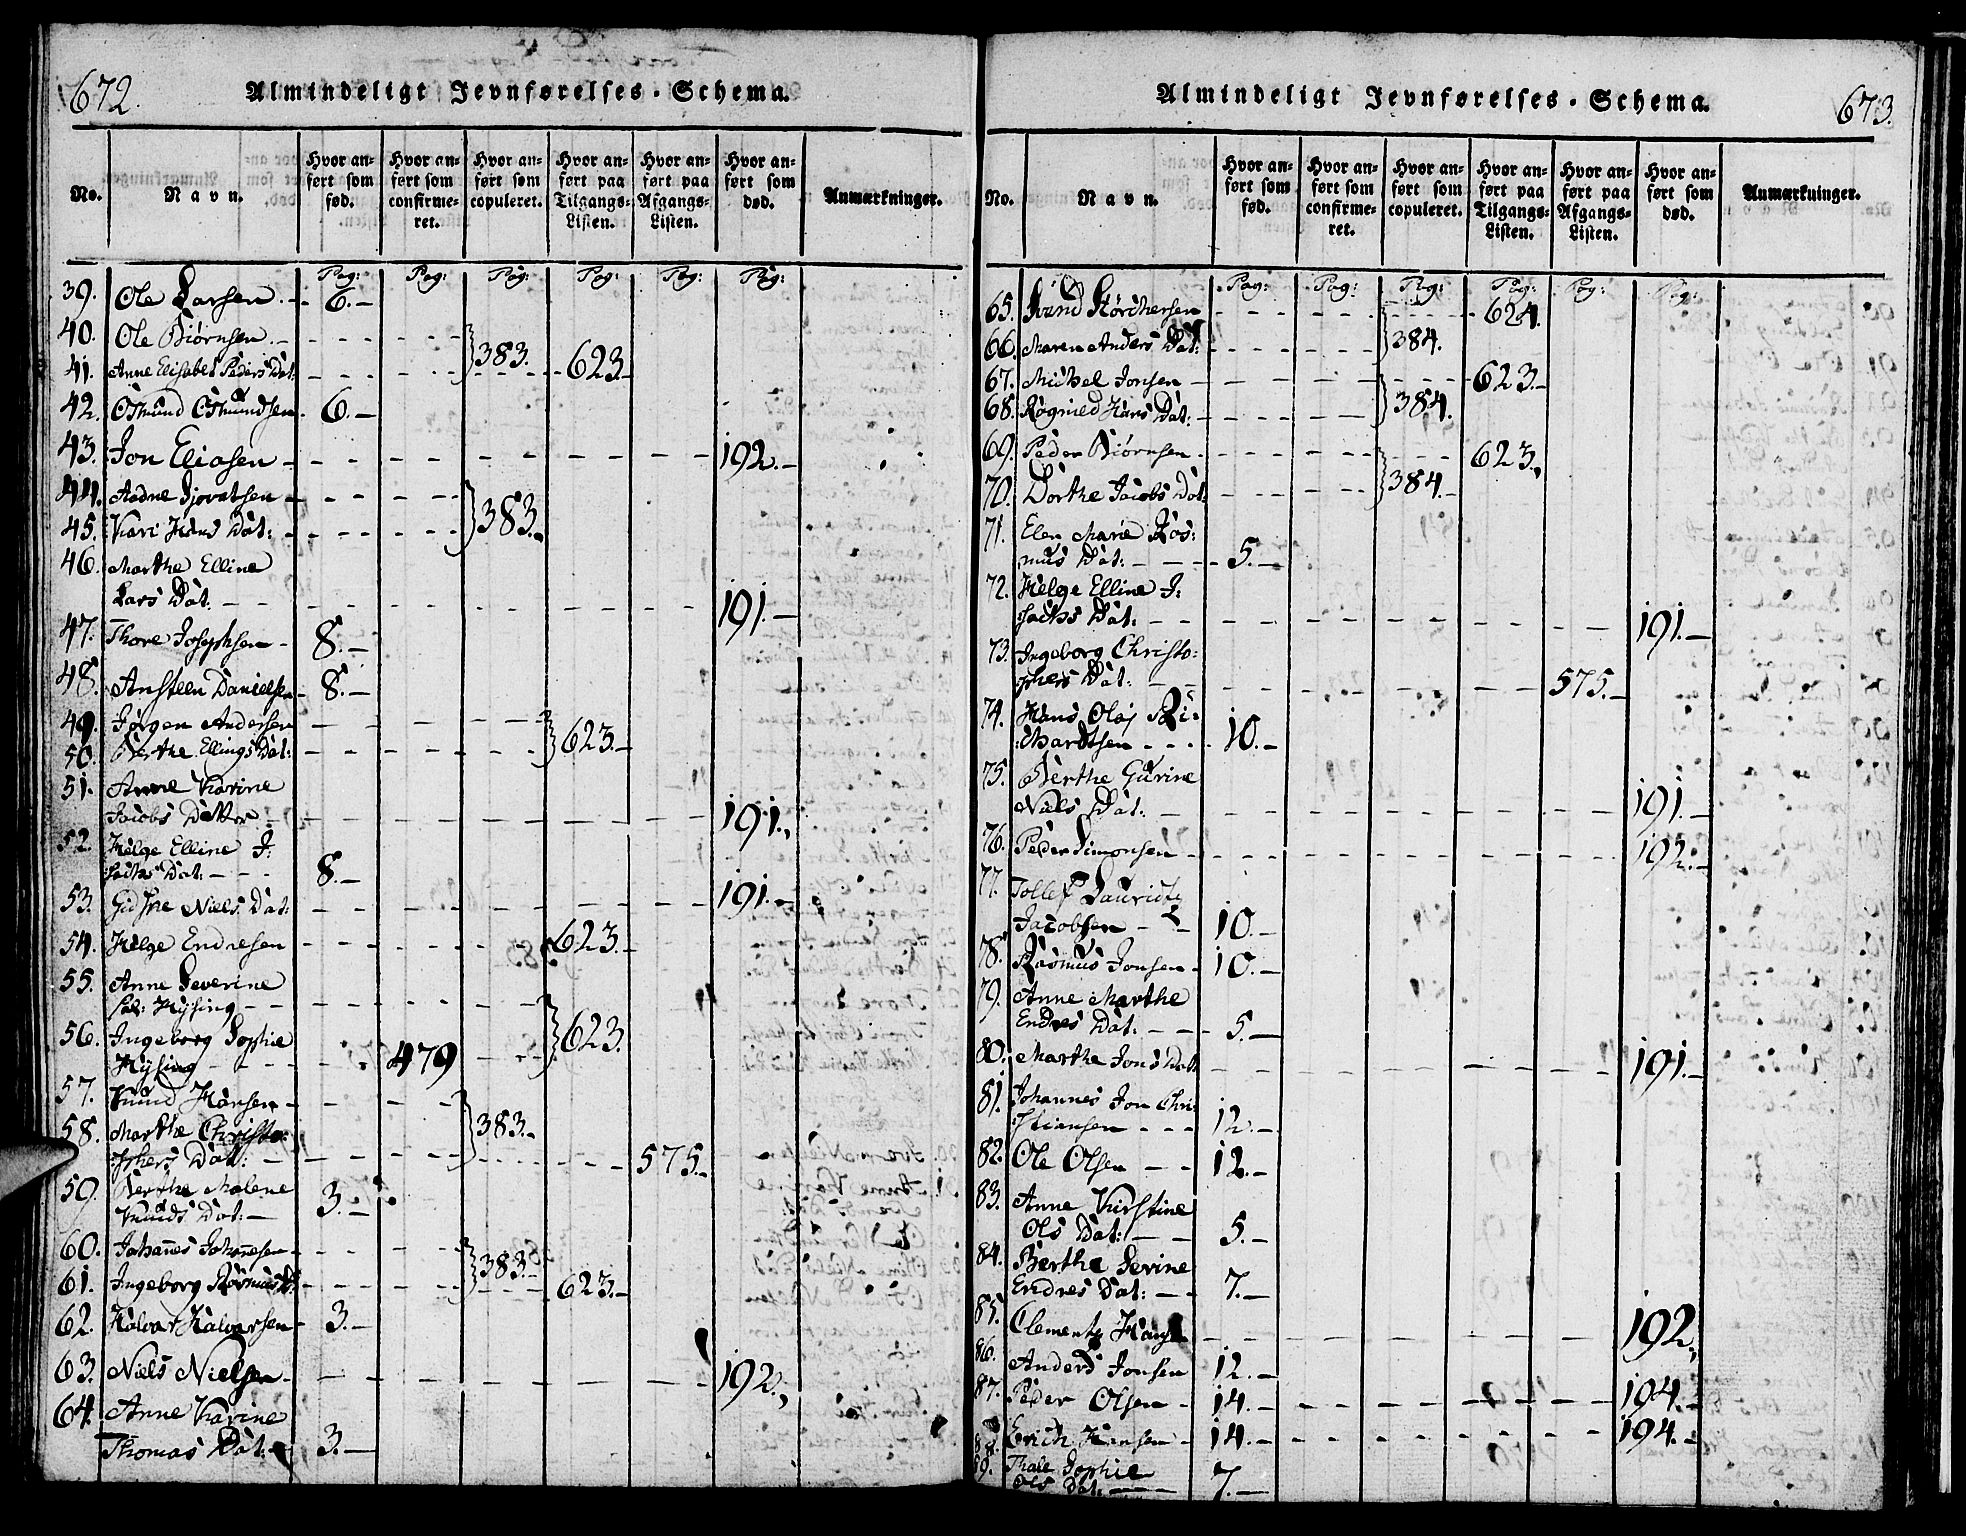 672.
Almindeligt Jevnførelses-Schema.
No.
Navn.
Hvor anført som fød.
Hvor anført som confirmeret.
Hvor anført som copuleret.
Hvor anført paa Tilgangs-Listen.
Hvor anført paa Afgangs-Listen.
Hvor anført som død.
Anmærkninger.
Pag: Pag: Pag: Pag: Pag: Pag:
39. Ole Larsen - 6. -
40. Ole Biørnsen. - - - - 383.
41. Anne Elisabet Peders Dat: - - - - - 623
42. Osmund Osmundsen. 6. -
43. Jon Eliasen - - - - - 192. -
44. Aadne Sjovatsen - - - - 383. -
45. Kari Hans Dat: - - - -
46. Marthe Elline
Lars Dat. - - - - - - 191. -
47. Thore Josephsen - 8. -
48. Ansteen Danielsen - 8. -
49. Jørgen Andersen - - - 623. -
50. Berthe Ellings Dat: - - -
51. Anne Karine
Jacobs Datter - - - - - 191.,
52. Helge Elline J:
sachs Dat. - - - 8. -
53. Niels Dat: - - - - - 191. -
54. Helge Endresen - - - - 623. -
55. Anne Severine
Sal: Hysing - - - - - 623.
56. Ingeborg Sophie
Hysing - - - - 479 - - -
57. Knud Hansen - - - - 383. -
58. Marthe Christo:
phers Dat: - - - - - 575. -
59. Berthe Malene
Knuds Dat: - 3. -
60. Johannes Johannesen - - - - 383. -
61. Ingeborg Rasmus D: - - - - 623. -
62. Halvor Halvorsen - 3. -
63. Niels Nielsen - - - - - 192.,
64. Anne Karine
Thomas Dat: - 3. -
Almindeligt Jevnførelses-Schema.
673.
No.
Navn.
Hvor anført som fød.
Hvor anført som confirmeret.
Hvor anført som copuleret.
Hvor anført paa Tilgangs-Listen.
Hvor anført paa Afgangs-Listen.
Hvor anført som død.
Anmærkninger.
Pag: Pag: Pag: Pag: Pag: Pag:
65. - - - - 624.
66. Maren Anders Dat: - - - - 384.
67. Michel Jonsen - - - - 623. -
68. Ragnild Hans Dat: - - - - 384.
69. Peder Biørnsen. - - - - 623.,
70. Dorthe Jacobs Dat: - - - - 384. -
71. Elen Marie Ras:
mus Dat: - - - 5. -
72. Helge Elline J:
sachs Dat: - - - - - - 191. -
73. Ingeborg Christo:
phers Dat: - - - - - 575. -
74. Hans Olai Ri:
chardtsen - - - 10. -
75. Berthe Gurine
Niels Dat: - - - - - - 191. -
76. Peder Simonsen - - - - - - 192. -
77. Tollef Lauridtz
Jacobsen - - 10. -
78. Rasmus Jonsen - 10. -
79. Anne Marthe
Endres Dat: - - 5. -
80. Marthe Jons Dat: - - - - - 191. -
81. Johannes Jon Chri:
stiansen - - - 12. -
82. Ole Olsen - - 12. -
83. Anne Kirstine
Ols Dat: - - 5. -
84. Berthe Serine
Endres Dat: - - 7. -
85. Clementz - - - - - - 192.,
86. Anders Jonsen 12. -
87. Peder Olsen - 14. - - - - - 194. -
88. Erich Hansen - 14. - - - - - 194. -
89. Thale Sophie
Ols Dat. - - - 7. -